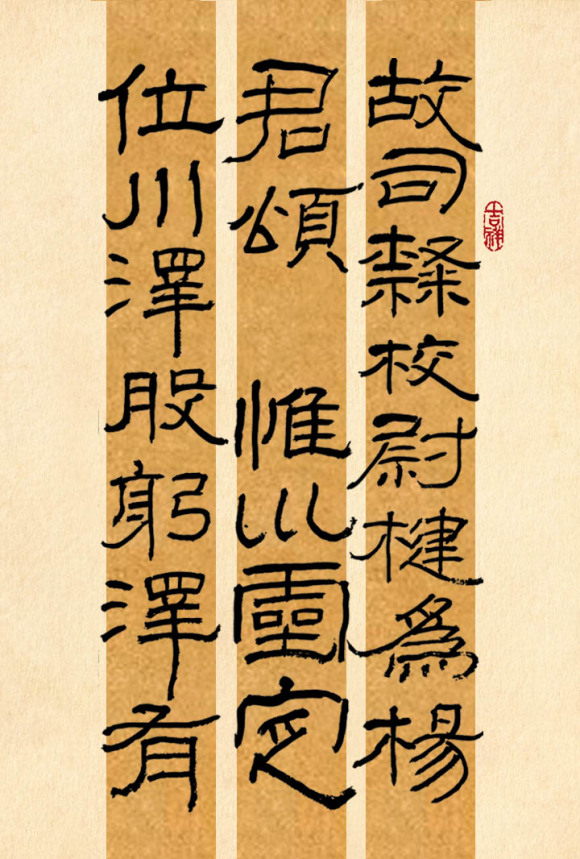 故司隸校尉楗爲楊
君頌 惟巛靈定
位川澤股躬澤有
吉祥